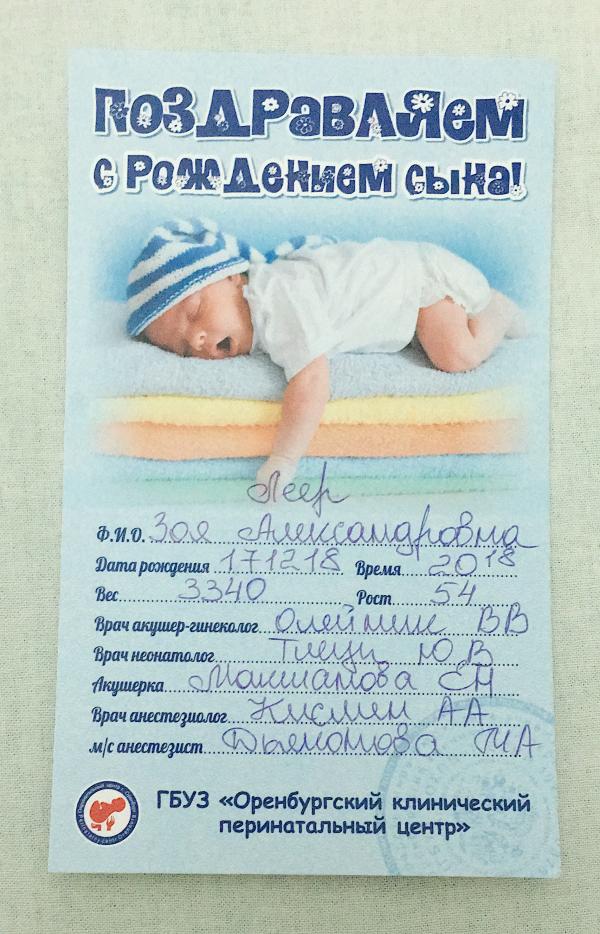 ПОЗДРАВЛЯЕМ
С РОЖДЕНИЕМ СЫНА!
Леер
Ф.И.О. Зоя Александровна
Дата рождения 171218 Время 20 18
Вес 3340 Рост 54
Врач акушер-гинеколог Олейник ВВ
Врач неонатолог Ю В
Акушерка СН
Врач анестезиолог АА
м/с анестезист МА
ГБУЗ «Оренбургский клинический
перинатальный центр»